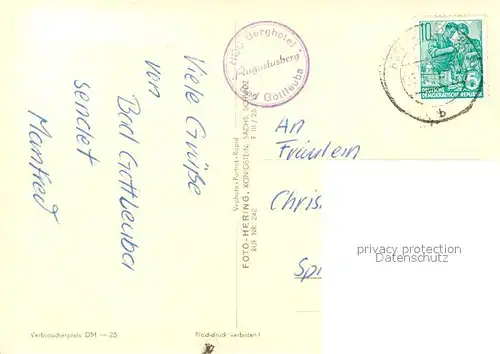 Viele Grüße
von
Bad Gottleuba
sendet
Manfred
HOG Berghotel
"Augustusberg"
Bad Gottleuba
10
5
DEUTSCHE
DEMOKRATISCHE REPUBLIK
b
An
Fräulein
Chris
Sp
privacy protection
Datenschutz
FOTO-HERING, KÖNIGSTEIN, SÄCHS. SCHWEIZ
RUF NR. 242
Verbraucherpreis DM —.25
Nachdruck verboten!